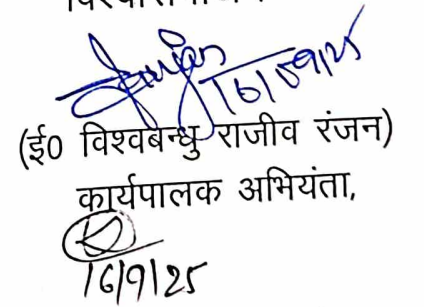 16/09/25
(ई० विश्वबन्धु राजीव रंजन)
कार्यपालक अभियंता,
16/9/25